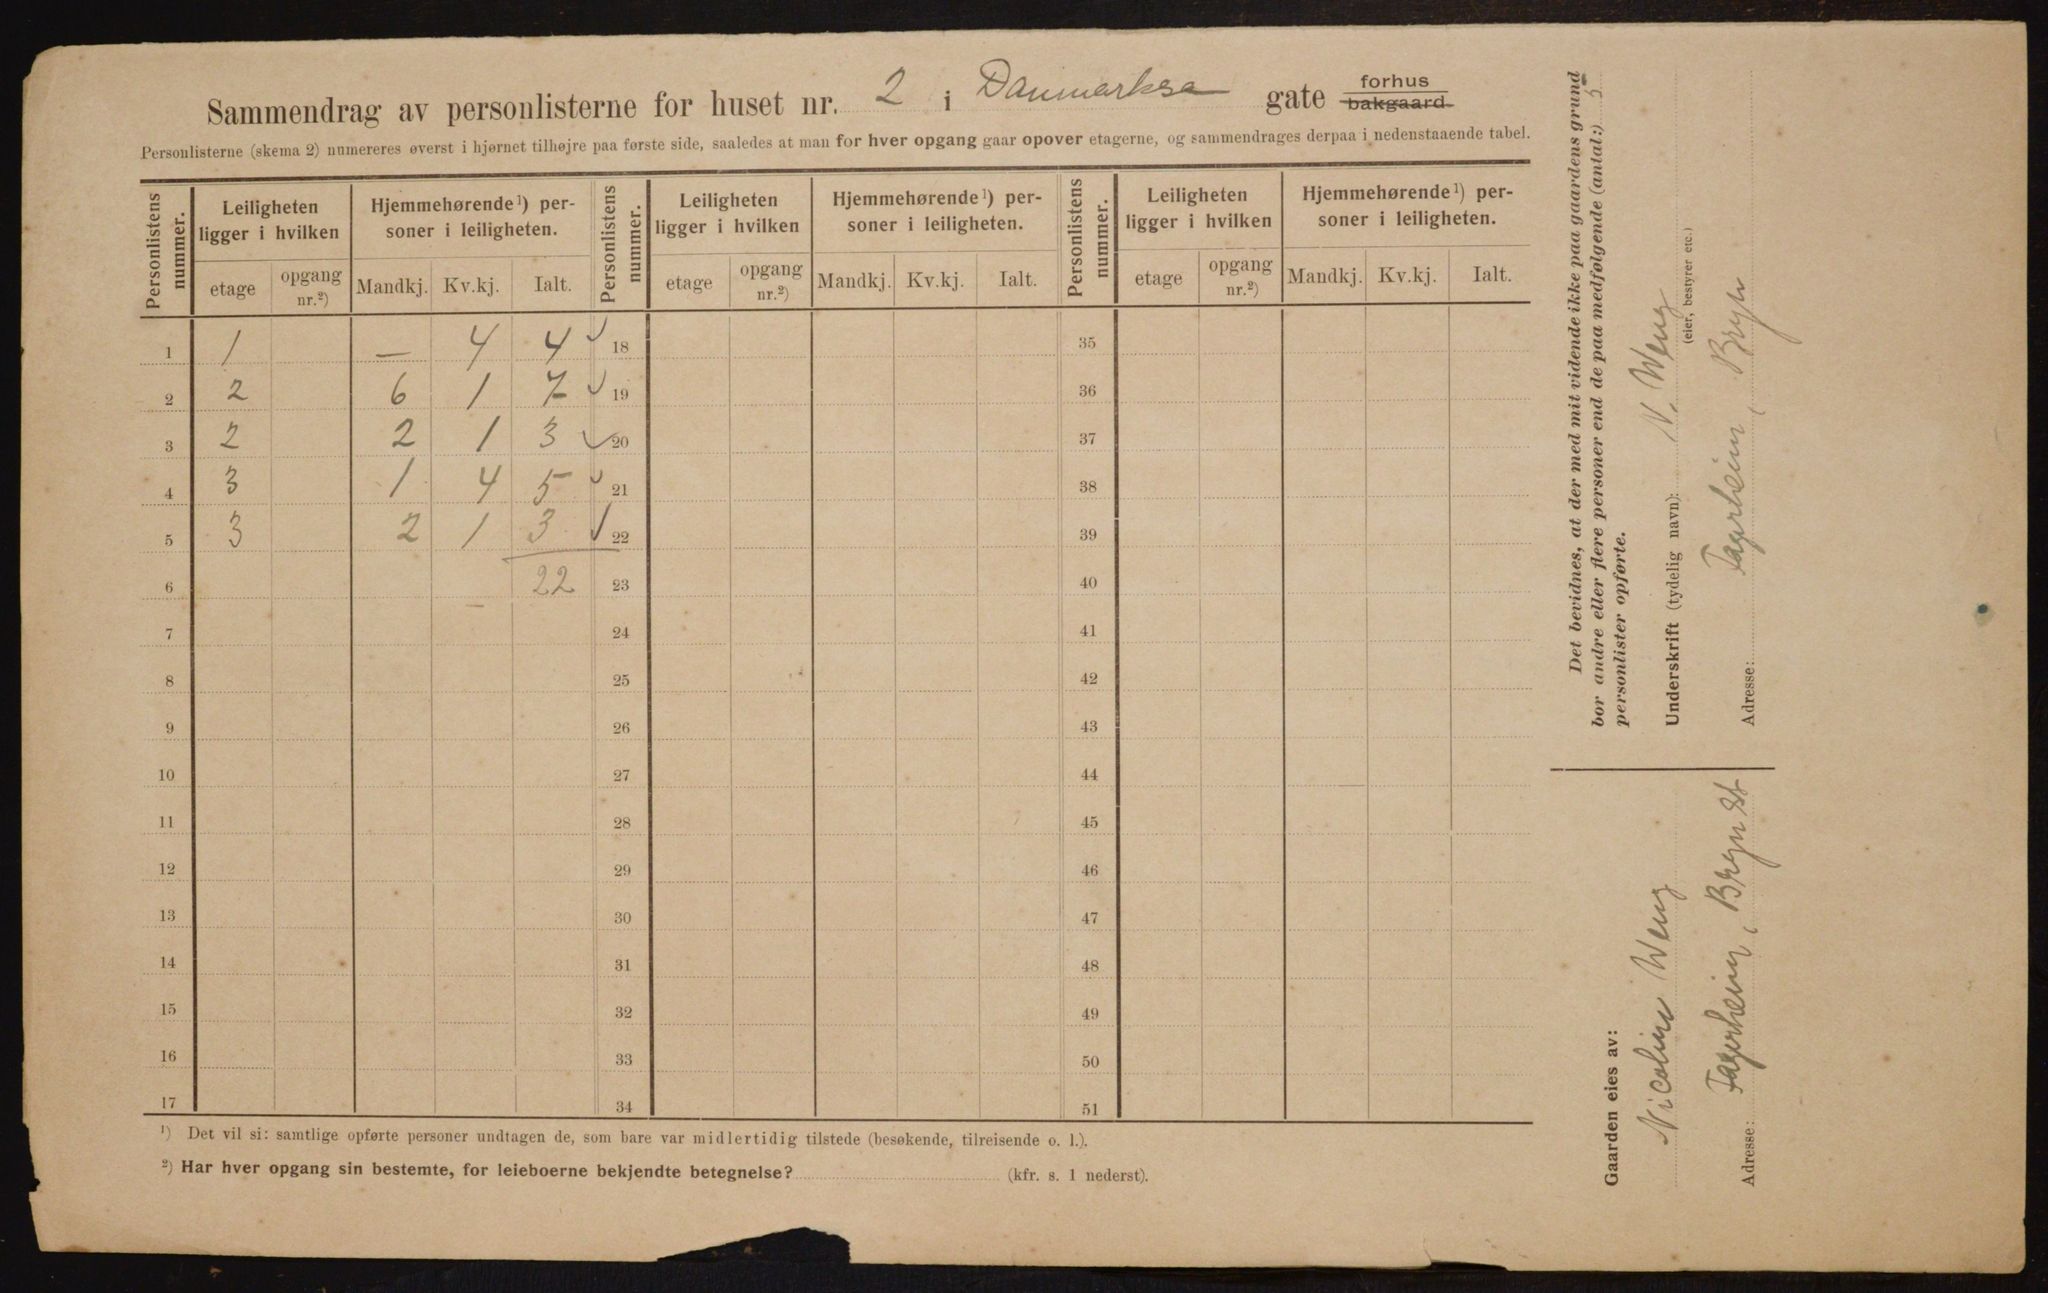 Sammendrag av personlisterne for huset nr. 2 i Danmarksa gate forhus bakgaard
Personlisterne (skema 2) numereres øverst i hjørnet tilhøjre paa første side, saaledes at man for hver opgang gaar opover etagerne, og sammendrages derpaa i nedenstaaende tabel.
Personlistens nummer. Leiligheten ligger i hvilken Hjemmehørende¹) personer i leiligheten. Personlistens nummer. Leiligheten ligger i hvilken Hjemmehørende¹) personer i leiligheten. Personlistens nummer. Leiligheten ligger i hvilken Hjemmehørende¹) personer i leiligheten.
etage opgang nr.²) Mandkj. Kv.kj. Ialt. etage opgang nr.²) Mandkj. Kv.kj. Ialt. etage opgang nr.²) Mandkj. Kv.kj. Ialt.
1 1 — 4 4 18 35
2 2 6 1 7 19 36
3 2 2 1 3 20 37
4 3 1 4 5 21 38
5 3 2 1 3 22 39
6 22 23 40
7 24 41
8 25 42
9 26 43
10 27 44
11 28 45
12 29 46
13 30 47
14 31 48
15 32 49
16 33 50
17 34 51
¹) Det vil si: samtlige opførte personer undtagen de, som bare var midlertidig tilstede (besøkende, tilreisende o. l.).
²) Har hver opgang sin bestemte, for leieboerne bekjendte betegnelse? (kfr. s. 1 nederst).
Det bevidnes, at der med mit vidende ikke paa gaardens grund
bor andre eller flere personer end de paa medfølgende (antal:) 5
personlister opførte.
Underskrift (tydelig navn): N. Weng
(eier, bestyrer etc.)
Adresse: Fagerheim, Bryn
Gaarden eies av:
Nicoline Weng
Adresse: Fagerheim, Bryn St